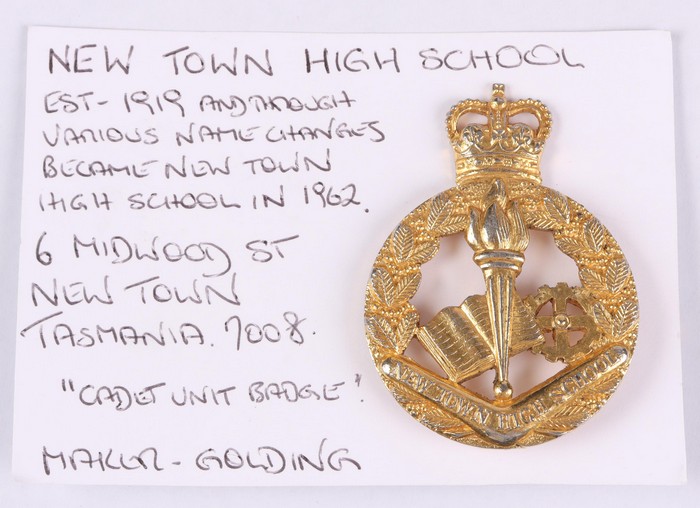 NEW TOWN HIGH SCHOOL
EST - 1919 AND THROUGH
VARIOUS NAME CHANGES
BECAME NEW TOWN
HIGH SCHOOL IN 1962.
6 MIDWOOD ST
NEW TOWN
TASMANIA. 7008.
"CADET UNIT BADGE".
MAKER - GOLDING
NEW TOWN HIGH SCHOOL